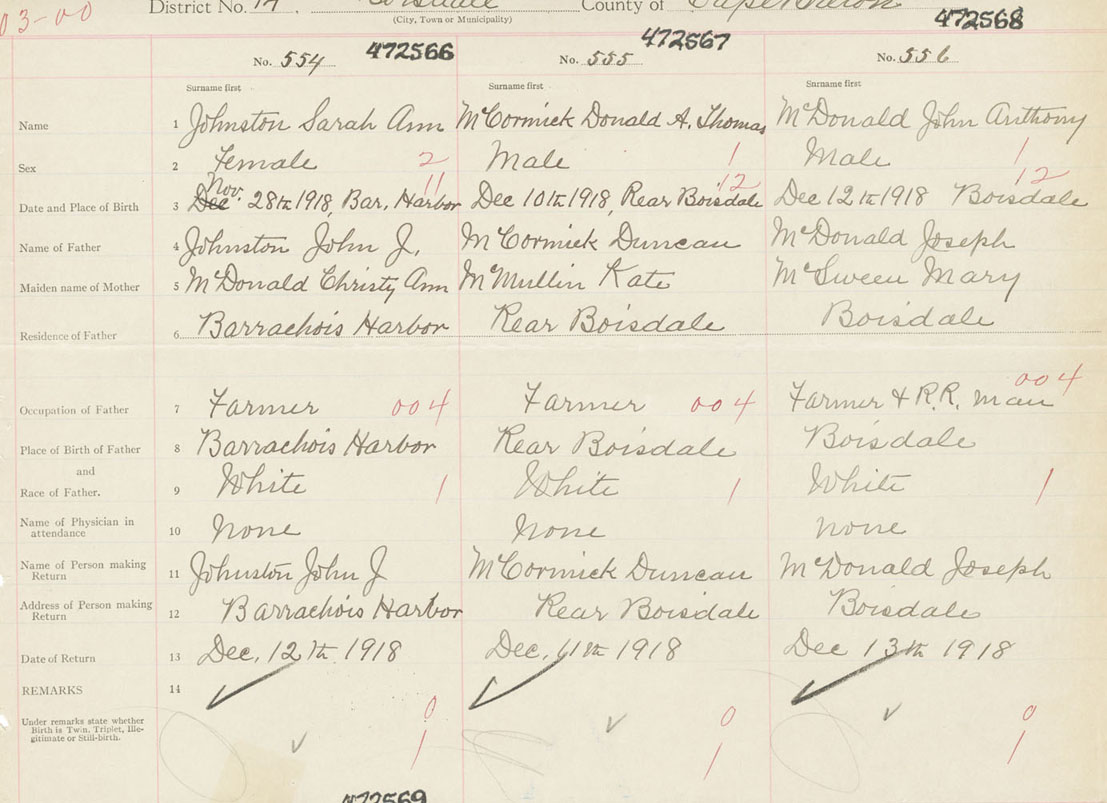 03-00
District No. 14 Boisdale County of Cape Breton
(City, Town or Municipality)
472566 472567 472568
No. 554 No. 555 No. 556
Surname first Surname first Surname first
Name 1 Johnston Sarah Ann McCormick Donald A. Thomas McDonald John Anthony
Sex 2 Female 2 Male 1 Male 1
Nov. 11 12 12
Date and Place of Birth 3 Dec 28th 1918, Bar. Harbor Dec 10th 1918, Rear Boisdale Dec 12th 1918 Boisdale
Name of Father 4 Johnston John J. McCormick Duncan McDonald Joseph
Maiden name of Mother 5 McDonald Christy Ann McMullin Kate McSween Mary
Residence of Father 6 Barrachois Harbor Rear Boisdale Boisdale
Occupation of Father 7 Farmer 004 Farmer 004 Farmer & R.R. man 004
Place of Birth of Father 8 Barrachois Harbor Rear Boisdale Boisdale
and
Race of Father. 9 White 1 White 1 White 1
Name of Physician in attendance 10 none none none
Name of Person making Return 11 Johnston John J McCormick Duncan McDonald Joseph
Address of Person making Return 12 Barrachois Harbor Rear Boisdale Boisdale
Date of Return 13 Dec. 12th 1918 Dec. 11th 1918 Dec 13th 1918
REMARKS 14
Under remarks state whether Birth is Twin, Triplet, Ille-
gitimate or Still-birth.
0 0 0
1 1 1
472569